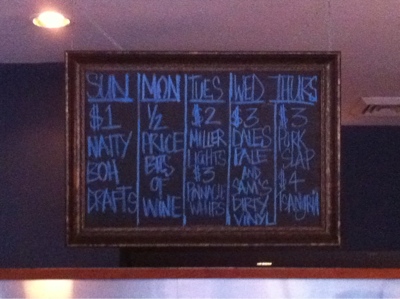 SUN
$1
NATTY
BOH
DRAFTS
MON
1/2
PRICE
BTLS
OF
WINE
TUES
$2
MILLER
LIGHTS
$3
PINNACLE
WED
$3
DALES
PALE
AND
SAM'S
DIRTY
VINYL
THURS
$3
PORK
SLAP
$4